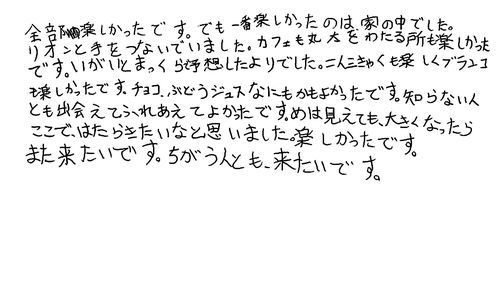 全部楽しかったです。でも一番楽しかったのは、家の中でした。
リオンと手をつないでいました。カフェも丸太をわたる所も楽しかった
です。いがいとまっくら予想したよりでした。二人三きゃくも楽しくブランコ
も楽しかったです。チョコ、ぶどうジュースなにもかもよかったです。知らない人
とも出会えてふれあえてよかったです。めは見えても、大きくなったら
ここで、はたらきたいなと思いました。楽しかったです。
また来たいです。ちがう人とも、来たいです。